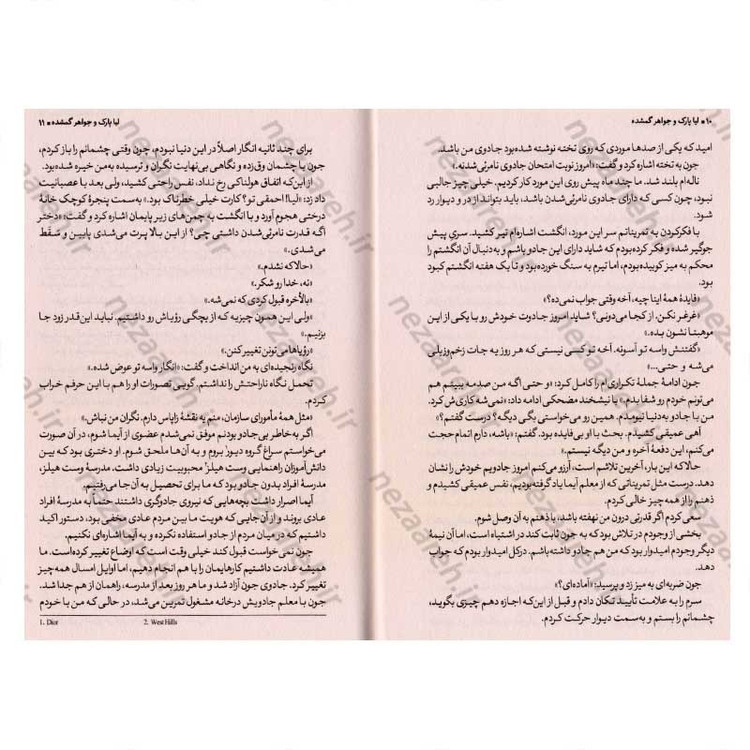 ۱۰ • لیا پارک و جواهر گمشده
امید که یکی از صدها موردی که روی تخته نوشته شده‌بود جادوی من باشد.
جون به تخته اشاره کرد و گفت: «امروز نوبت امتحان جادوی نامرئی شدنه.»
ناله‌ام بلند شد. ما چند ماه پیش روی این مورد کار کردیم. خیلی چیز جالبی
نبود، چون کسی که دارای جادوی نامرئی‌شدن باشد، باید بتواند از در و دیوار رد
شود.
با فکرکردن به تمریناتم سر این مورد، انگشت اشاره‌ام تیر کشید. سری پیش
جوگیر شده و فکر کرده‌بودم که شاید دارای این جادو باشم و به‌دنبال آن انگشتم را
محکم به میز کوبیده‌بودم، اما تیرم به سنگ خورده‌بود و تا یک هفته انگشتم کبود
بود.
«فایدهٔ همهٔ اینا چیه، آخه وقتی جواب نمی‌ده؟»
«غرغر نکن. از کجا می‌دونی؟ شاید امروز جادوت خودش رو با یکی از این
موهبتا نشون بده.»
«گفتنش واسه تو آسونه. آخه تو کسی نیستی که هر روز یه جات زخم‌وزیلی
می‌شه و حتی...»
جون ادامهٔ جملهٔ تکراری‌ام را کامل کرد: «و حتی اگه من صدمه ببینم هم
می‌تونم خودم رو شفا بدم.» با نیشخند مضحکی ادامه داد: «نمی‌شه کاری‌ش کرد.
من با جادو به‌دنیا نیومدم. همین رو می‌خواستی بگی دیگه؟ درست گفتم؟»
آهی عمیقی کشیدم. بحث با او بی‌فایده بود. گفتم: «باشه، دارم اتمام حجت
می‌کنم، این دفعهٔ آخره و من دیگه نیستم.»
حالا که این بار، آخرین تلاشم است، آرزو می‌کنم امروز جادویم خودش را نشان
دهد. درست مثل تمریناتی که از معلم آیما یاد گرفته‌بودیم، نفس عمیقی کشیدم و
ذهنم را از همه‌چیز خالی کردم.
سعی کردم اگر قدرتی درون من نهفته باشد، با ذهنم به آن وصل شوم.
بخشی از وجودم در تلاش بود که به جون ثابت کند در اشتباه است، اما آن نیمهٔ
دیگر وجودم امیدوار بود که من هم جادو داشته‌باشم. درکل امیدوار بودم که جواب
دهد.
جون ضربه‌ای به میز زد و پرسید: «آماده‌ای؟»
سرم را به علامت تأیید تکان دادم و قبل از این‌که اجازه دهم چیزی بگوید،
چشمانم را بستم و به‌سمت دیوار حرکت کردم.
لیا پارک و جواهر گمشده • ۱۱
برای چند ثانیه انگار اصلاً در این دنیا نبودم، چون وقتی چشمانم را باز کردم،
جون با چشمان وق‌زده و نگاهی بی‌نهایت نگران و ترسیده به‌من خیره شده‌بود.
از این‌که اتفاق هولناکی رخ نداد، نفس راحتی کشید، ولی بعد با عصبانیت
داد زد: «لیا! احمقی تو؟ کارت خیلی خطرناک بود.» به‌سمت پنجرهٔ کوچک خانهٔ
درختی هجوم آورد و با انگشت به چمن‌های زیر پایمان اشاره کرد و گفت: «دختر
اگه قدرت نامرئی‌شدن داشتی چی؟ از این بالا پرت می‌شدی پایین و سَقَط
می‌شدی.»
«حالا که نشدم.»
«نه، خدا رو شکر.»
«بالأخره قبول کردی که نمی‌شه.»
«ولی این همون چیزیه که از بچگی رؤیاش رو داشتیم. نباید این‌قدر زود جا
بزنیم.»
«رؤیاها می‌تونن تغییر کنن.»
نگاه رنجیده‌ای به من انداخت و گفت: «انگار واسه تو عوض شده.»
تحمل نگاه ناراحتش را نداشتم. گویی تصورات او را هم با این حرفم خراب
کردم.
«مثل همهٔ مأمورای سازمان، منم یه نقشهٔ زاپاس دارم. نگران من نباش.»
اگر به‌خاطر بی‌جادو بودنم موفق نمی‌شدم عضوی از آیما شوم، در آن صورت
می‌خواستم سراغ گروه دیور¹ بروم و به آن‌ها ملحق شوم. او دختری بود که بین
دانش‌آموزان راهنمایی وست هیلز² محبوبیت زیادی داشت. مدرسهٔ وست هیلز،
مدرسهٔ افراد بدون جادو بود که ما برای تحصیل به آن‌جا می‌رفتیم.
آیما اصرار داشت بچه‌هایی که نیروی جادوگری داشتند حتماً به مدرسهٔ افراد
عادی بروند و از آن جایی که هویت ما بین مردم عادی مخفی بود، دستور اکید
داشتیم که در میان مردم از جادو استفاده نکرده و به آیما اشاره‌ای نکنیم.
جون نمی‌خواست قبول کند خیلی وقت است که اوضاع تغییر کرده‌است. ما
همیشه عادت داشتیم کارهایمان را با هم انجام دهیم، اما اوایل امسال همه‌چیز
تغییر کرد. جادوی جون آزاد شد و ما هر روز بعد از مدرسه، راهمان از هم جدا شد.
جون با معلم جادویش در خانه مشغول تمرین می‌شد، در حالی که من با خودم
1. Dior
2. West Hills
nezaareh.ir